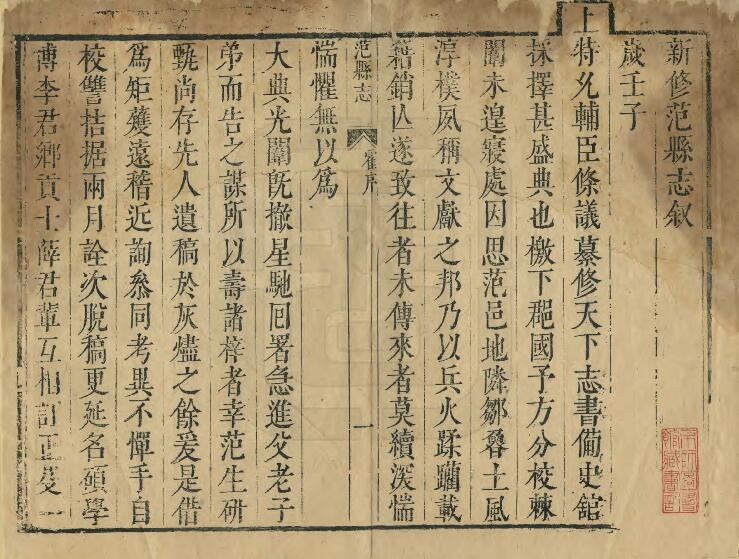 新修范縣志叙
歲壬子
上特允輔臣條議纂修天下志書備史舘
採擇甚盛典也檄下郡國予方分校棘
闈未遑寢處因思范邑地隣鄒魯土風
淳樸夙稱文獻之邦乃以兵火蹂躪載
籍銷亾遂致往者未傳來者莫續深惴
惴懼無以爲
范縣志
霍序
一
大典光闈旣撤星馳囘署急進父老子
弟而告之謀所以壽諸梓者幸范生研
甎尚存先人遺稿於灰燼之餘爰是借
爲矩矱遠稽近詢叅同考異不憚手自
校讐拮据兩月詮次脫稿更延名碩學
博李君鄉貢士薛君輩互相訂正癹一